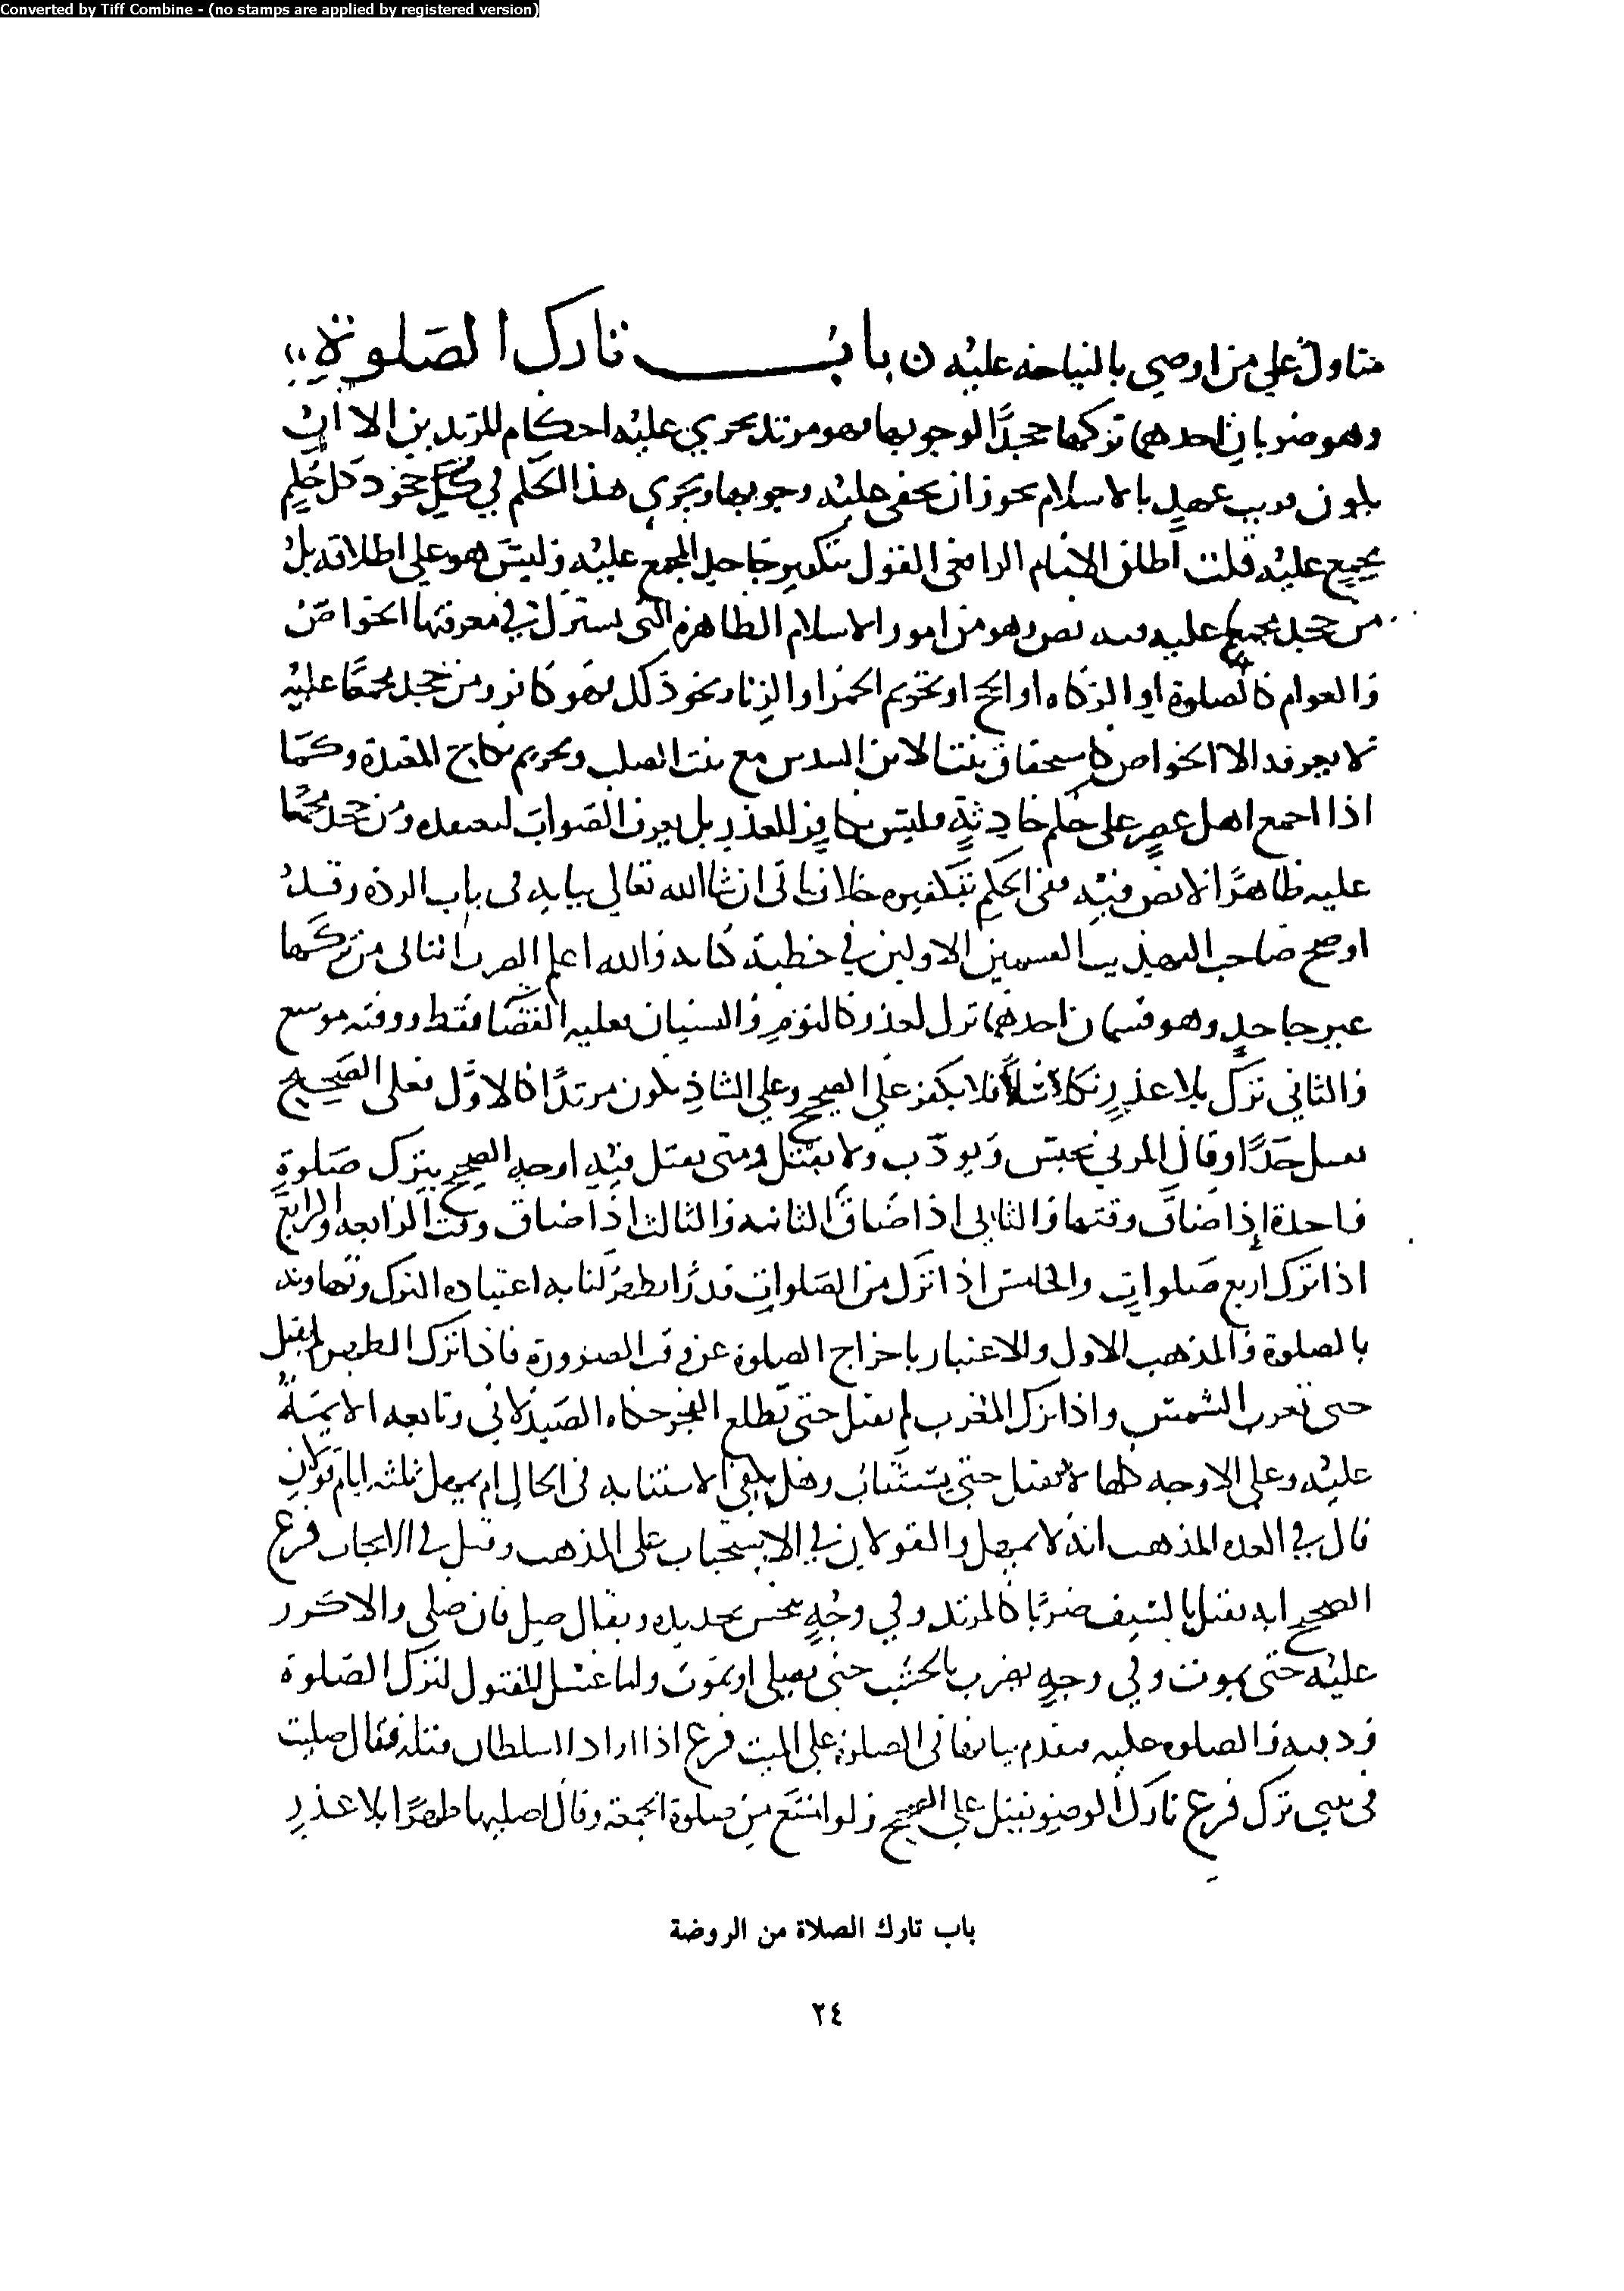 Converted by Tiff Combine - (no stamps are applied by registered version)
متاول على من اوصى بالنياحة عليه ن باب تارك الصلوة
وهو ضربان احدهما تركها جحدا لوجوبها فهو مرتد يجري عليه احكام المرتدين الا ان
يكون قريب عهد بالاسلام يجوز ان يخفى عليه وجوبها ويجري هذا الحكم في كل جحود كل حكم
مجمع عليه قلت اطلق الامام الرافعي القول بتكفير جاحد المجمع عليه وليس هو على اطلاقه بل
من جحد مجمعا عليه فيه نص وهو من امور الاسلام الظاهرة التي يشترك في معرفتها الخواص
والعوام كالصلوة او الزكاه او الحج او تحريم الخمر او الزنا ونحو ذلك فهو كافر ومن جحد مجمعا عليه
لا يعرفه الا الخواص كاستحقاق بنت الابن السدس مع بنت الصلب وتحريم نكاح المعتدة وكما
اذا اجمع اهل عصر على حكم حادثة فليس بكافر للعذر بل يعرف الصواب ليعتقده ومن جحد مجمعا
عليه ظاهرا لا نص فيه ففي الحكم بتكفيره خلاف ياتي ان شا الله تعالى بيانه في باب الردة وقد
اوضح صاحب التهذيب القسمين الاولين في خطبة كتابه والله اعلم الضرب الثاني من تركها
غير جاحد وهو قسمان احدهما ترك لعذر كالنوم والنسيان فعليه القضا فقط ووقته موسع
والثاني ترك بلا عذر تكاسلا فلا يكفر على الصحيح وعلى الشاذ يكون مرتدا كالاول فعلى الصحيح
يقتل حدا وقال المزني يحبس ويودب ولا يقتل ومتى يقتل فيه اوجه الصحيح بترك صلوة
واحدة اذا ضاق وقتها والثاني اذا ضاق الثانية والثالث اذا ضاق وقت الرابعه والرابع
اذا ترك اربع صلوات والخامس اذا ترك من الصلوات قدرا يظهر لنا به اعتياده الترك وتهاونه
بالصلوة والمذهب الاول والاعتبار باخراج الصلوة عن وقت الضرورة فاذا ترك الظهر لم يقتل
حتى تغرب الشمس واذا ترك المغرب لم يقتل حتى يطلع الفجر حكاه الصيدلاني وتابعه الايمة
عليه وعلى الاوجه كلها لا يقتل حتى يستتاب وهل يكفي الاستتابه في الحال ام يمهل ثلثه ايام قولان
قال في العده المذهب انه لا يمهل والقولان في الاستحباب على المذهب وقيل في الايجاب فرع
الصحيح انه يقتل بالسيف ضربا كالمرتد وفي وجه ينخس بحديده ويقال صل فان صلى والا كرر
عليه حتى يموت وفي وجه يضرب بالخشب حتى يصلي او يموت واما غسل المقتول لترك الصلوة
ودفنه والصلوه عليه فتقدم بيانها في الصلوة على الميت فرع اذا اراد السلطان قتله فقال صليت
في بيتي ترك فرع تارك الوضو يقتل على الصحيح ولو امتنع من صلوة الجمعة وقال اصليها ظهرا بلا عذر
باب تارك الصلاة من الروضة
٢٤